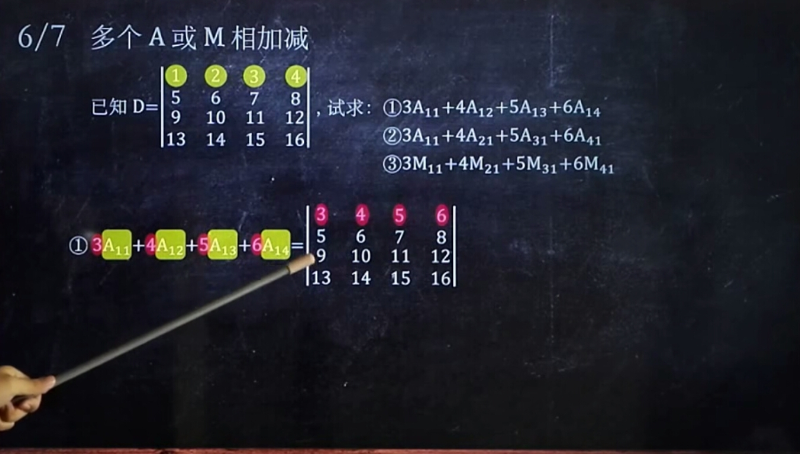 6/7 多个 A 或 M 相加减
已知 D=
1 2 3 4
5 6 7 8
9 10 11 12
13 14 15 16
, 试求: ①3A₁₁+4A₁₂+5A₁₃+6A₁₄
②3A₁₁+4A₂₁+5A₃₁+6A₄₁
③3M₁₁+4M₂₁+5M₃₁+6M₄₁
①3A₁₁+4A₁₂+5A₁₃+6A₁₄=
3 4 5 6
5 6 7 8
9 10 11 12
13 14 15 16